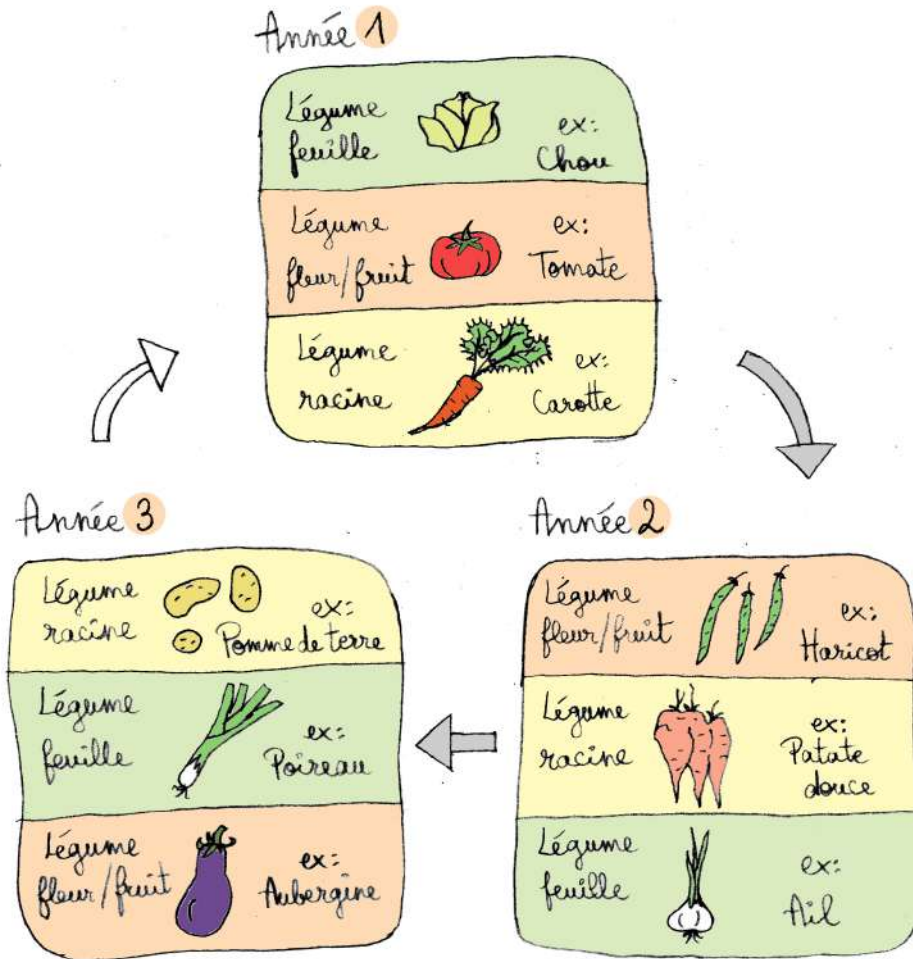 Année 1
Légume
feuille
ex:
Chou
Légume
fleur/fruit
ex:
Tomate
Légume
racine
ex:
Carotte
Année 2
Légume
fleur/fruit
ex:
Haricot
Légume
racine
ex:
Patate
douce
Légume
feuille
ex:
Ail
Année 3
Légume
racine
ex:
Pomme de terre
Légume
feuille
ex:
Poireau
Légume
fleur/fruit
ex:
Aubergine